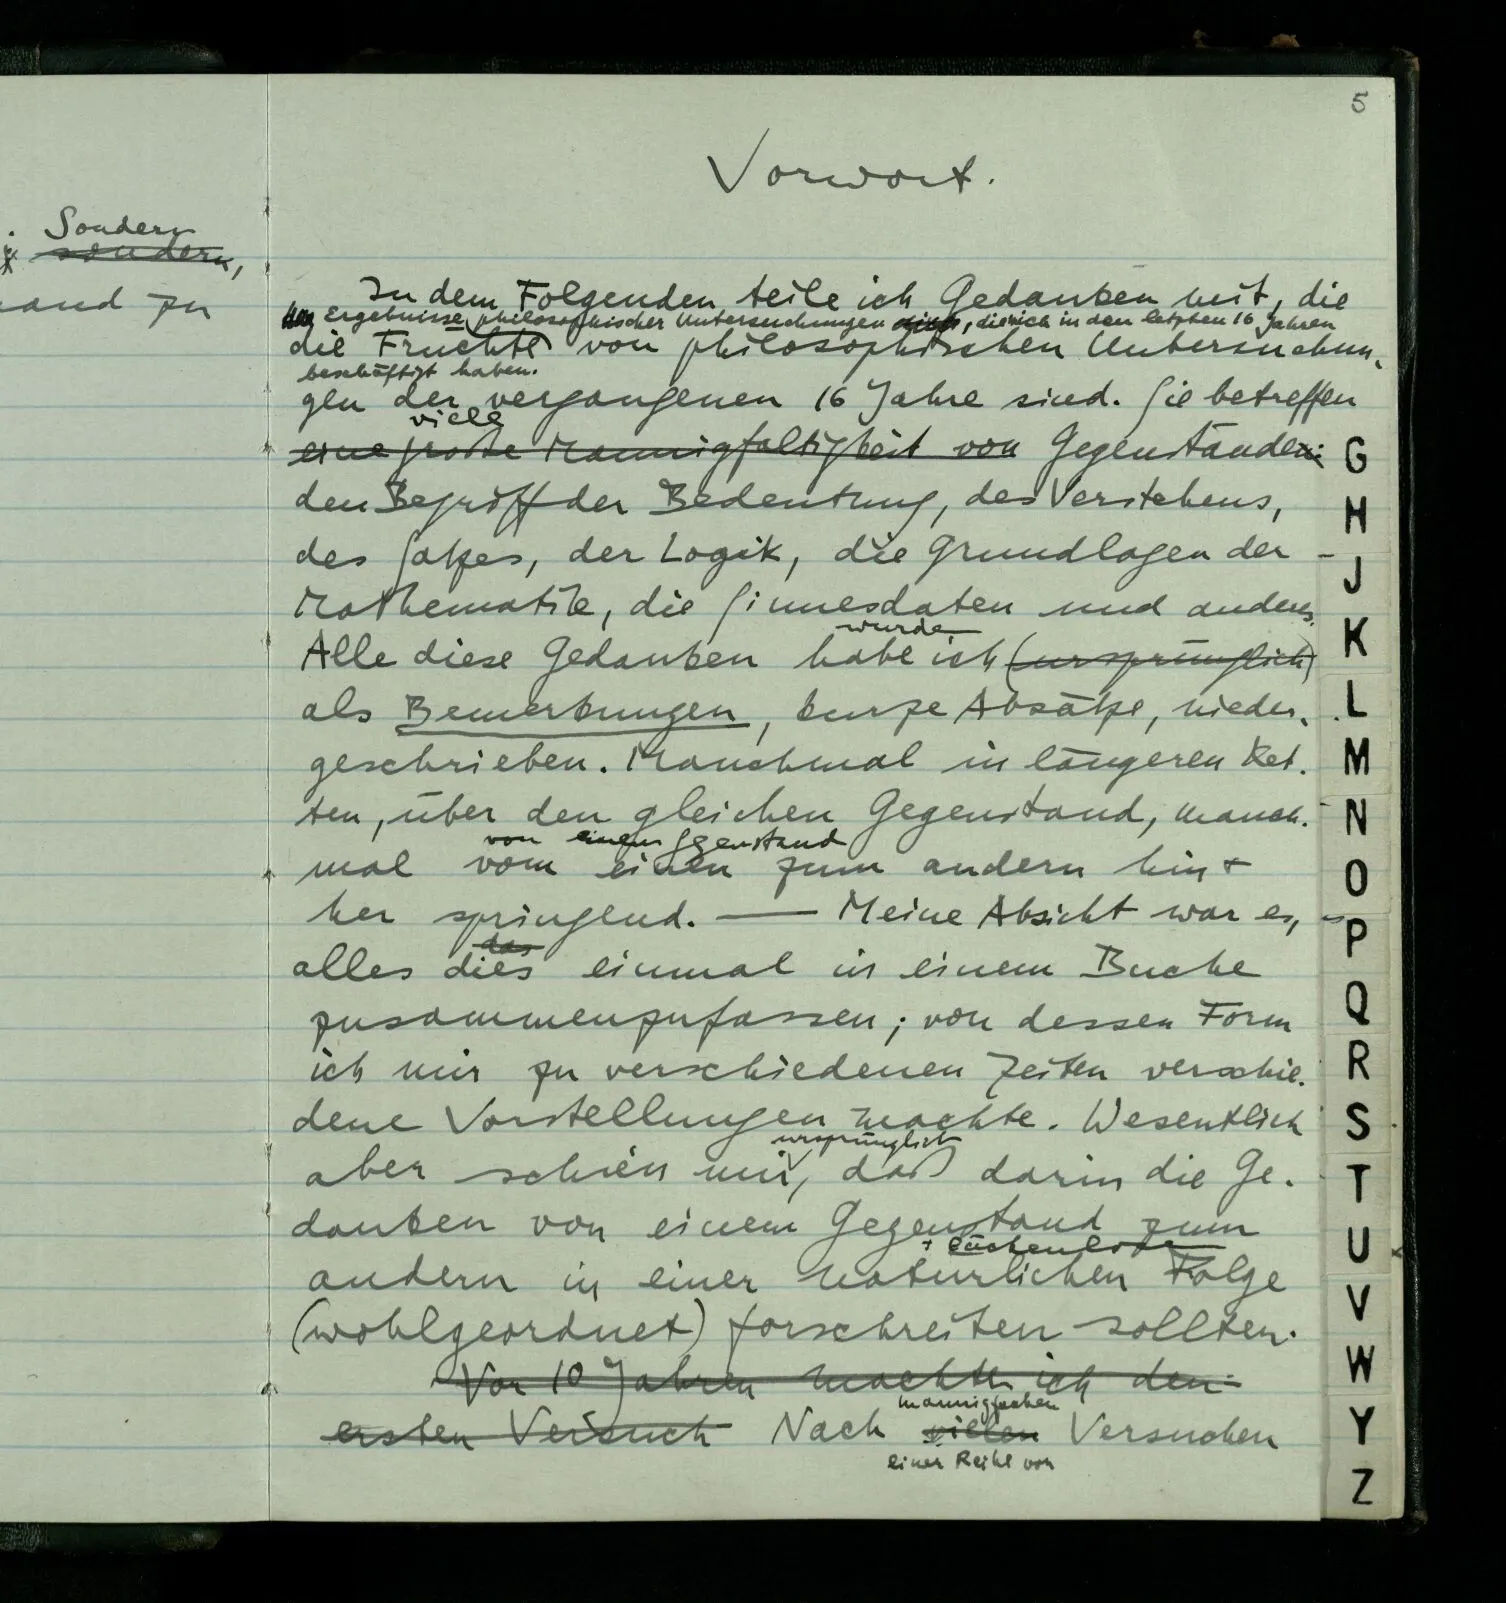 5
Vorwort.
. Sondern
sondern,
and zu
In dem Folgenden teile ich Gedanken mit, die
Ergebnisse philosophischer Untersuchungen, die mich in den letzten 16 Jahren
die Früchte von philosophischen Untersuchun-
beschäftigt haben.
gen der vergangenen 16 Jahre sind. Sie betreffen
viele
eine große Mannigfaltigkeit von Gegenständen:
den Begriff der Bedeutung, des Verstehens,
des Satzes, der Logik, die Grundlagen der
Mathematik, die Sinnesdaten und anderes.
wurde
Alle diese Gedanken habe ich (ursprünglich)
als Bemerkungen, kurze Absätze, nieder-
geschrieben. Manchmal in längeren Ket-
ten, über den gleichen Gegenstand, manch-
von einem Ggenstand
mal vom einen zum andern hin +
her springend. — Meine Absicht war es,
das
alles dies einmal in einem Buche
zusammenzufassen; von dessen Form
ich mir zu verschiedenen Zeiten verschie-
dene Vorstellungen machte. Wesentlich
ursprünglich
aber schien mir, daß darin die Ge-
danken von einem Gegenstand zum
+ lückenlose
andern in einer natürlichen Folge
(wohlgeordnet) forschreiten sollten.
Vor 10 Jahren machte ich den
mannigfachen
ersten Versuch Nach vielen Versuchen
einer Reihe von
G
H
J
K
L
M
N
O
P
Q
R
S
T
U
V
W
Y
Z